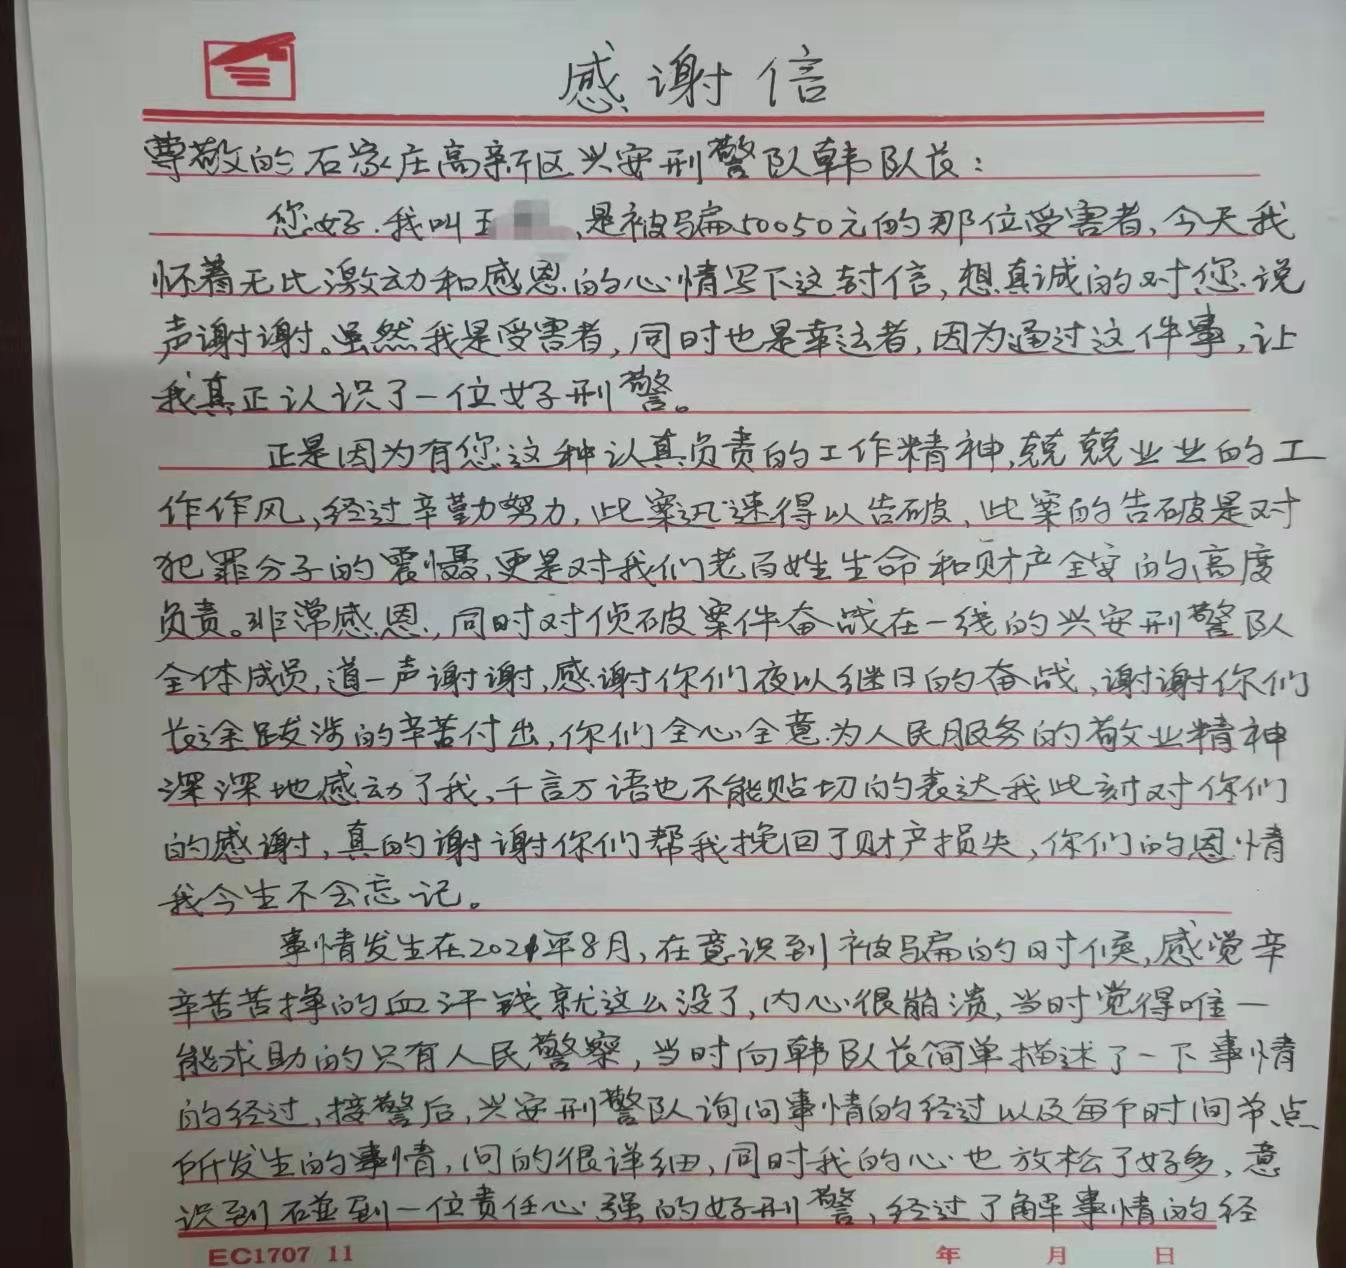 感谢信
尊敬的石家庄高新区兴安刑警队韩队长：
您好.我叫王 ,是被骗50050元的那位受害者,今天我
怀着无比激动和感恩的心情写下这封信,想真诚的对您说
声谢谢。虽然我是受害者,同时也是幸运者,因为通过这件事,让
我真正认识了一位好刑警。
正是因为有您这种认真负责的工作精神,兢兢业业的工
作作风,经过辛勤努力,此案迅速得以告破,此案的告破是对
犯罪分子的震慑,更是对我们老百姓生命和财产全安的高度
负责。非常感恩,同时对侦破案件奋战在一线的兴安刑警队
全体成员,道一声谢谢,感谢你们夜以继日的奋战,谢谢你们
长途跋涉的辛苦付出,你们全心全意为人民服务的敬业精神
深深地感动了我,千言万语也不能贴切的表达我此刻对你们
的感谢,真的谢谢你们帮我挽回了财产损失,你们的恩情
我今生不会忘记。
事情发生在2021年8月,在意识到被骗的时候,感觉辛
辛苦苦挣的血汗钱就这么没了,内心很崩溃,当时觉得唯一
能求助的只有人民警察,当时向韩队长简单描述了一下事情
的经过,接警后,兴安刑警队询问事情的经过以及每个时间节点
所发生的事情,问的很详细,同时我的心也放松了好多,意
识到碰到一位责任心强的好刑警,经过了解事情的经
EC1707 11 年 月 日